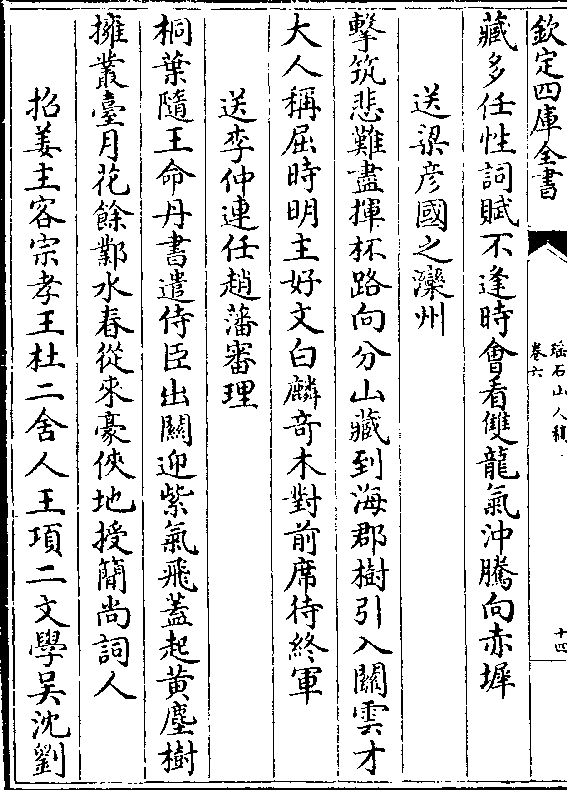 欽定四庫全書
瑶石山人稿
卷六
十四
藏多任性詞賦不逢時會看雙龍氣沖騰向赤墀
送梁彦國之灤州
擊筑悲難盡揮杯路向分山藏到海郡樹引入關雲才
大人稱屈時明主好文白麟竒木對前席待終軍
送李仲連任趙藩審理
桐葉隨王命丹書遣侍臣出關迎紫氣飛蓋起黄塵樹
擁叢臺月花餘鄴水春從來豪俠地授簡尚詞人
招姜主客宗孝王杜二舍人王項二文學吴沈劉